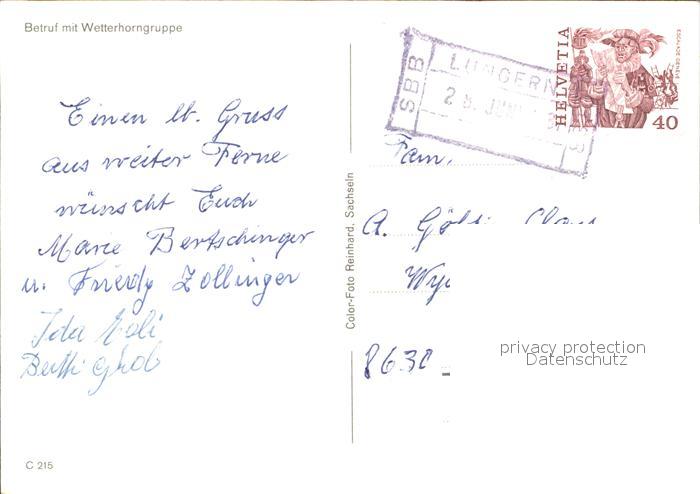 Betruf mit Wetterhorngruppe
Einen lb. Gruss
aus weiter Ferne
wünscht Euch
Marie Bertschinger
u. Friedy Zollinger
Ida
Berthi Grob
C 215
Color-Foto Reinhard, Sachseln
SBB
LUNGERN
28. JUN
HELVETIA
ESCALADE GENÈVE
40
Fam.
A.
8630
privacy protection
Datenschutz